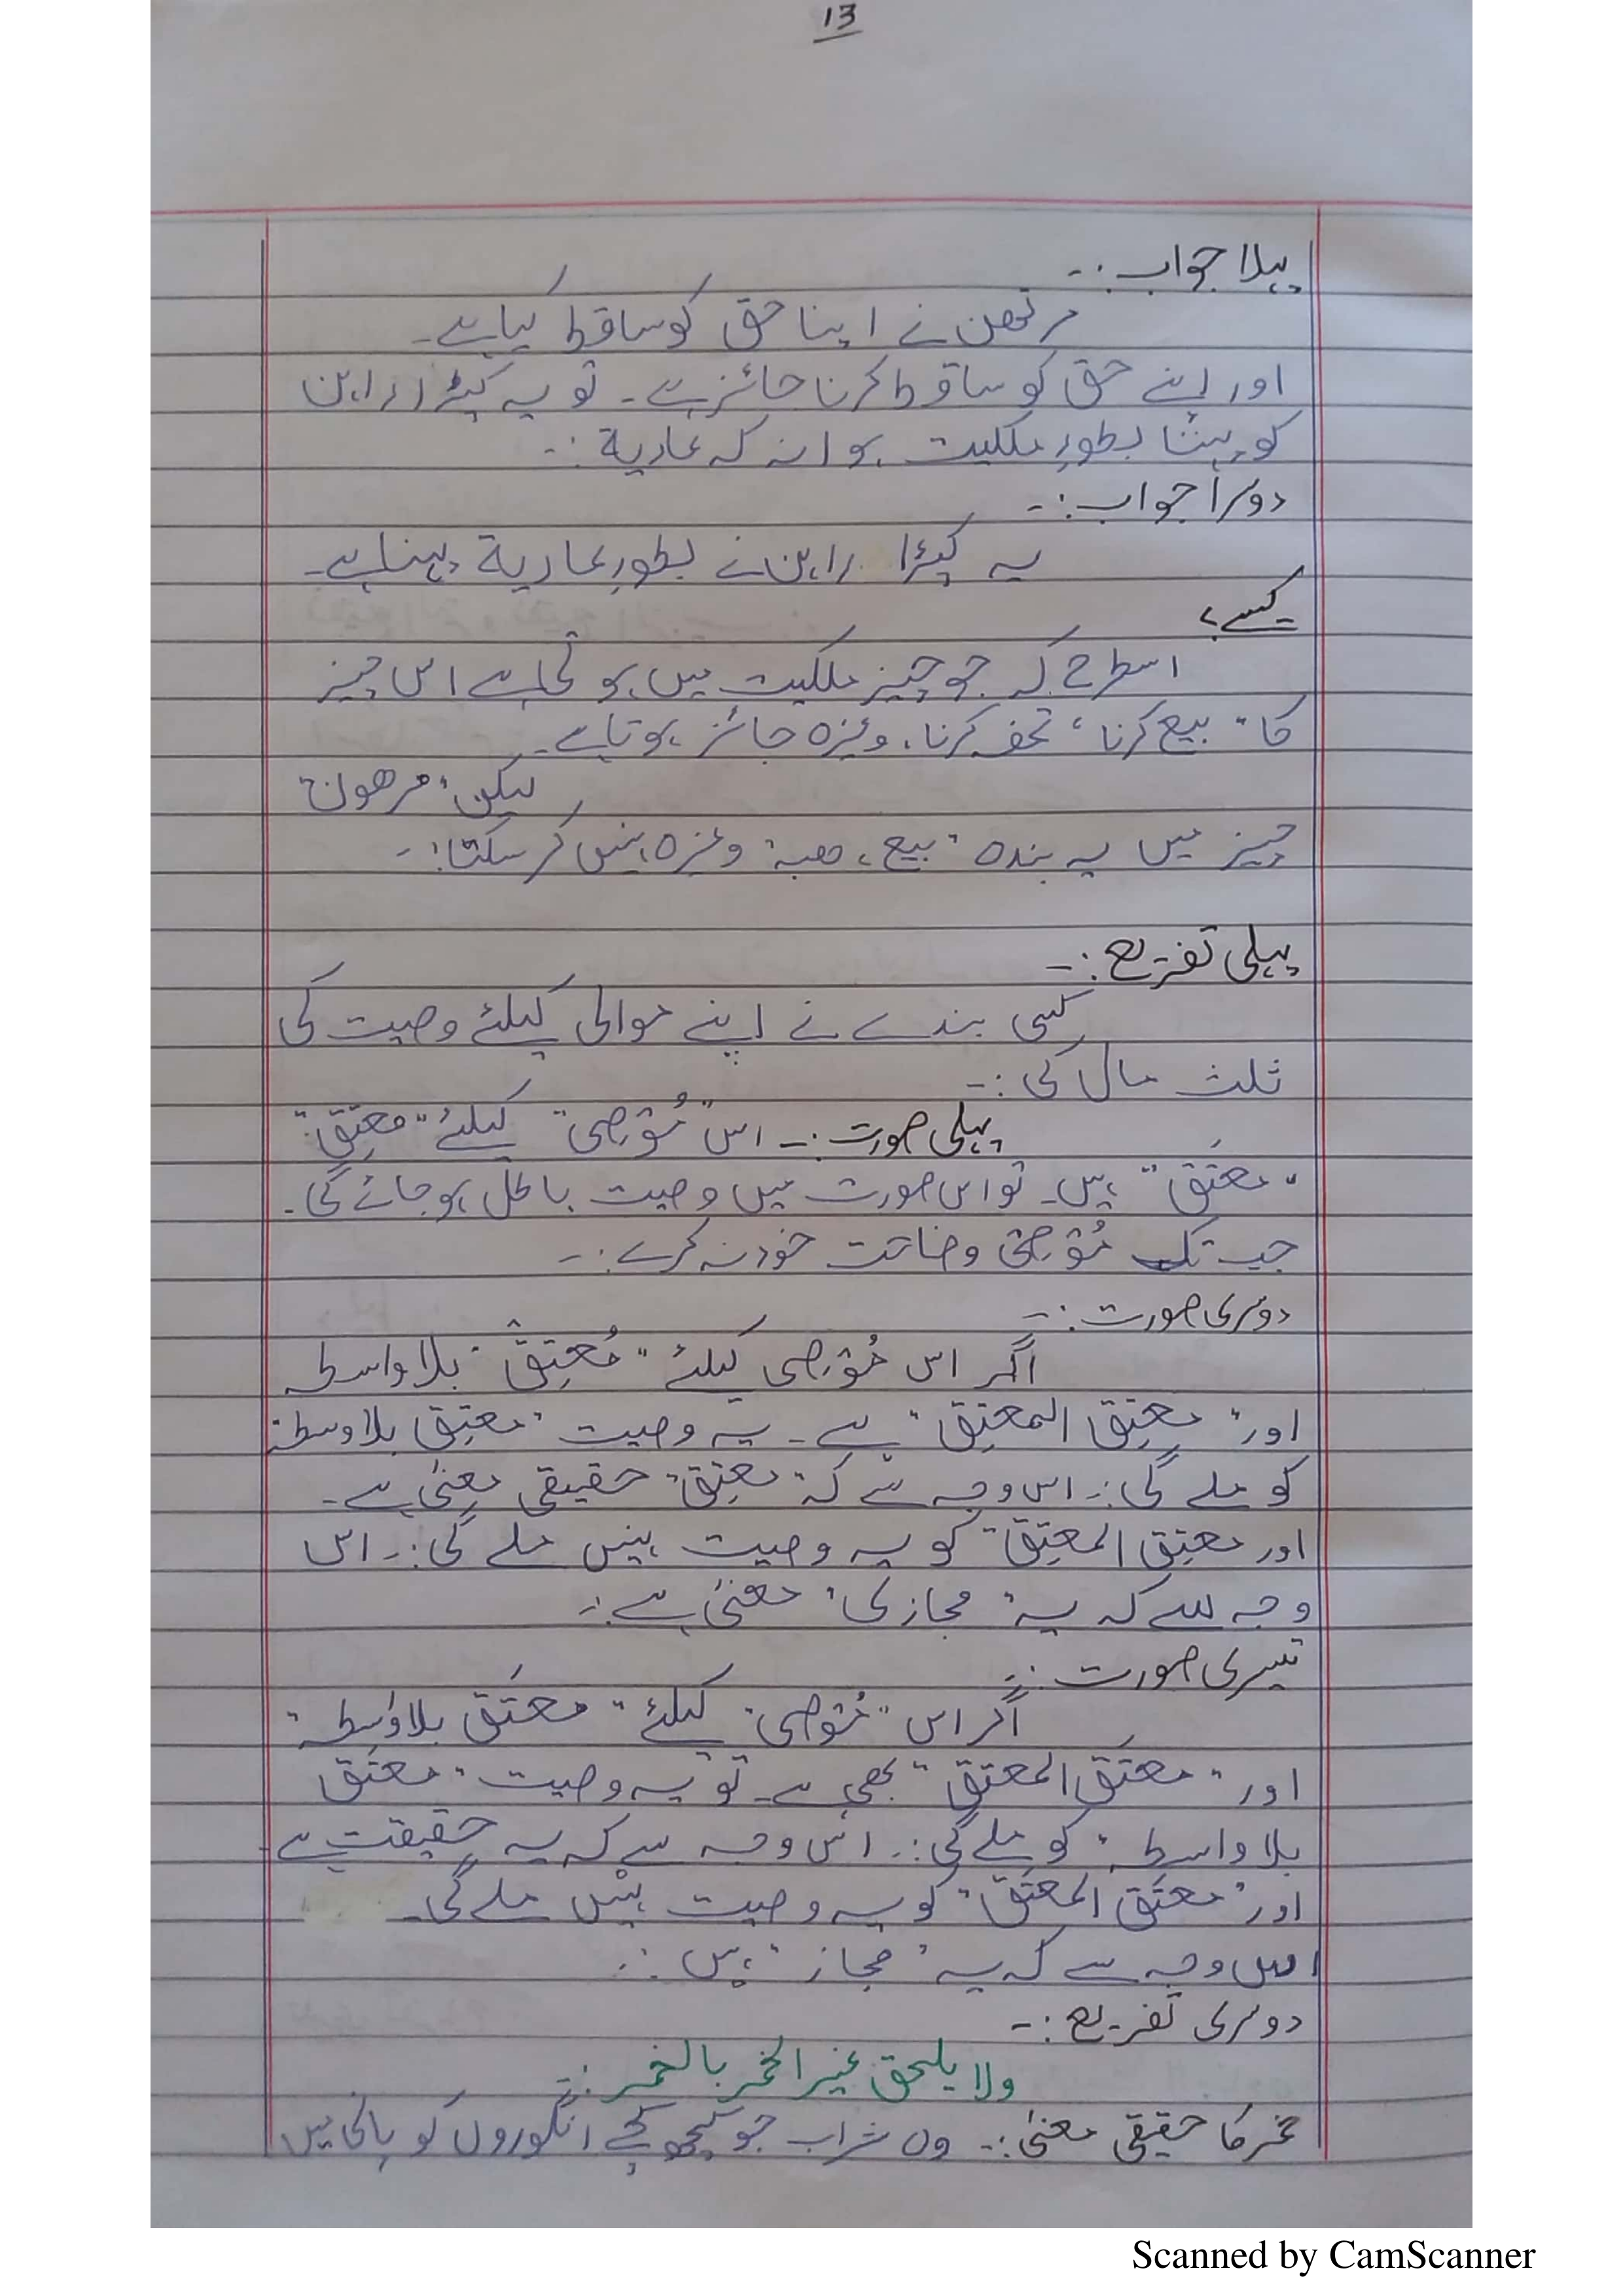 13
پہلا جواب :-
مرتھن نے اپنا حق کو ساقط کیا ہے۔
اور اپنے حق کو ساقط کرنا جائز ہے۔ تو یہ کپڑا راہن
کو پہننا بطورِ ملکیت ہوا نہ کہ عاریۃ :-
دوسرا جواب :-
یہ کپڑا راہن نے بطورِ عاریۃ پہنا ہے۔
کیسے؟
اسطرح کہ جو چیز ملکیت میں ہوتی ہے اس چیز
کا "بیع کرنا، تحفہ کرنا، وغیرہ جائز ہوتا ہے۔
لیکن "مرھون"
چیز میں یہ بندہ "بیع، ھبہ" وغیرہ نہیں کر سکتا :-
پہلی تفریع :-
کسی بندے نے اپنے موالی کیلئے وصیت کی
ثلث مال کی :-
پہلی صورت :- اس "مُوصِی" کیلئے "معتِق"
"معتَق" ہیں۔ تو اس صورت میں وصیت باطل ہو جائے گی۔
جب تک مُوصِی وضاحت خود نہ کرے :-
دوسری صورت :-
اگر اس مُوصِی کیلئے "مُعتِق" بلا واسطہ
اور "معتِق المعتِق" ہے۔ یہ وصیت "معتِق بلا وسطہ"
کو ملے گی :- اس وجہ سے کہ "معتِق" حقیقی معنیٰ ہے۔
اور معتِق المعتِق" کو یہ وصیت نہیں ملے گی :- اس
وجہ سے کہ یہ "مجازی" معنیٰ ہے :-
تیسری صورت :-
اگر اس "مُوصِی" کیلئے "معتَق بلا واسطہ"
اور "معتَق المعتَق" بھی ہے۔ تو یہ وصیت "معتَق
بلا واسطہ" کو ملے گی :- اس وجہ سے کہ یہ حقیقت ہے
اور "معتَق المعتَق" کو یہ وصیت نہیں ملے گی۔
اس وجہ سے کہ یہ "مجاز" ہیں :-
دوسری تفریع :-
ولا یلحق غیر الخمر بالخمر :-
خمر کا حقیقی معنیٰ :- وہ شراب جو کچے انگوروں کو پانی میں
Scanned by CamScanner